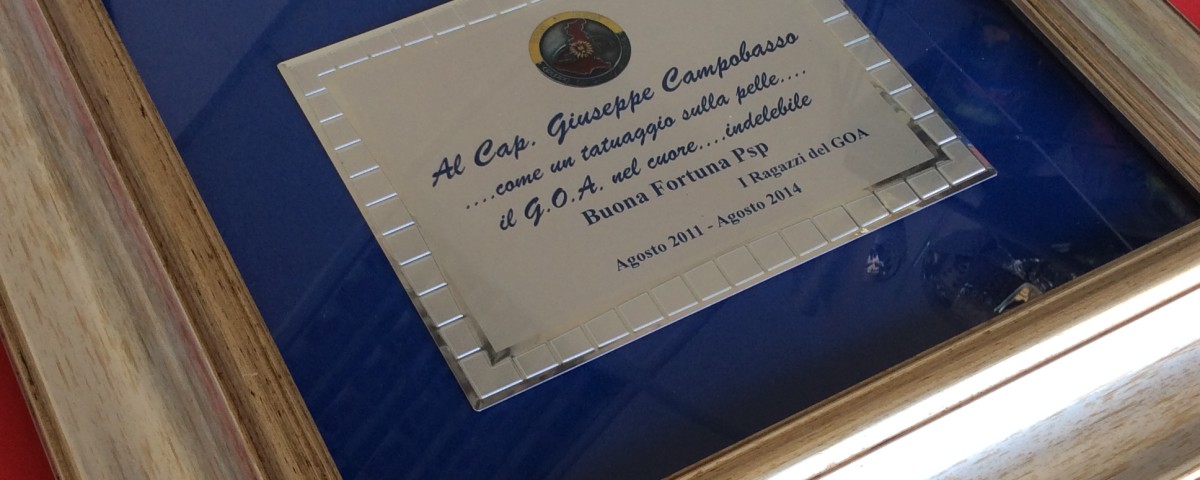 Al Cap. Giuseppe Campobasso
....come un tatuaggio sulla pelle....
il G.O.A. nel cuore....indelebile
Buona Fortuna Psp
I Ragazzi del GOA
Agosto 2011 - Agosto 2014